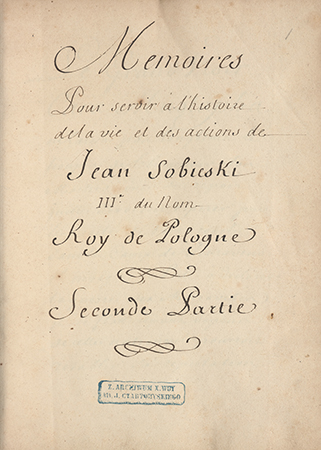 Memoires
Pour servir à l'histoire
de la vie et des actions de
Jean Sobieski
IIIe. du Nom
Roy de Pologne
Seconde Partie
Z ARCHIWUM X. WDY
AD. J. CZARTORYSKIEGO